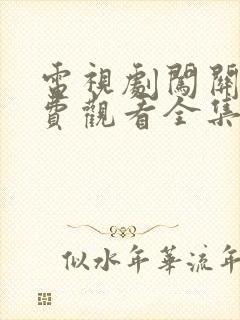 電視劇闖關
費觀看全集
似水年華流年